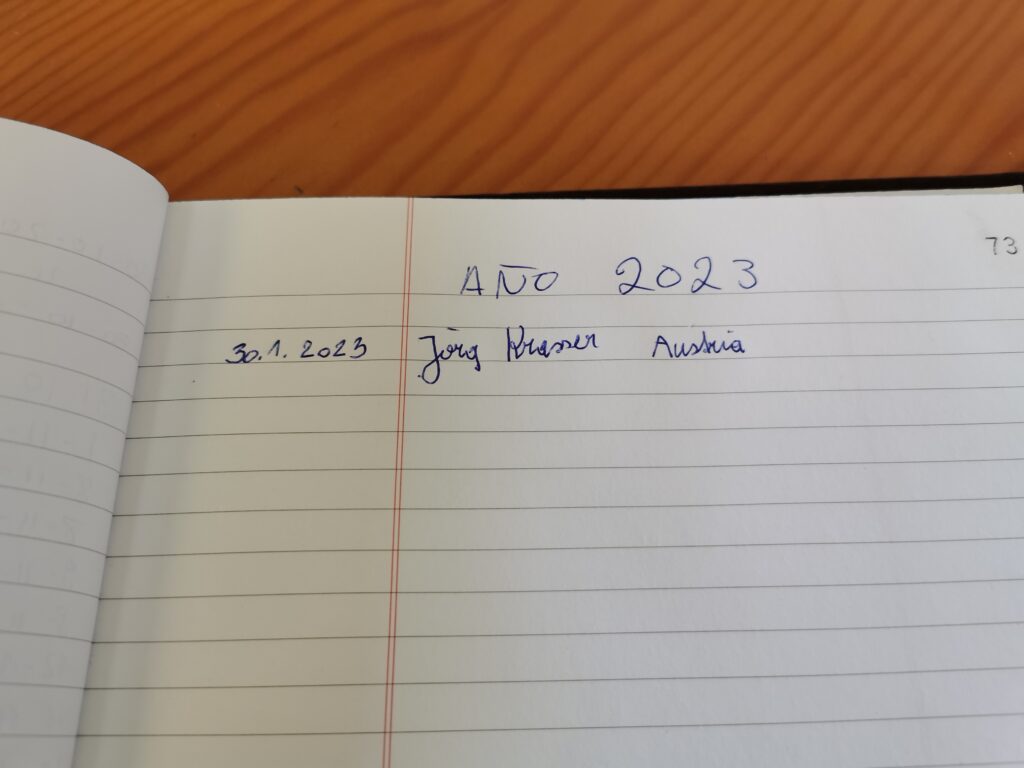 73
AÑO 2023
30.1.2023 Jörg Krasser Austria